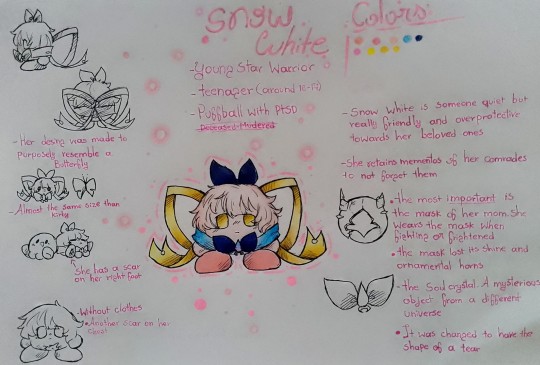 Snow
White
Colors:
-Young Star Warrior
-teenager
-Puffball with PTSD
-Her desing was made to
purposely resemble a
Butterfly
-Almost the same size than
Kirby
She has a scar
on her right foot
-Without clothes
•Another scar on her
chest
-Snow White is someone quiet but
really friendly and overprotective
towards her beloved ones
-She retains mementos of her comrades
to not forget them
•the most important is
the mask of her mom. She
wears the mask when
fighting or frightened
•the mask lost its shine and
ornamental horns
-the Soul crystal. A mysterious
object from a different
universe
•It was changed to have the
shape of a tear